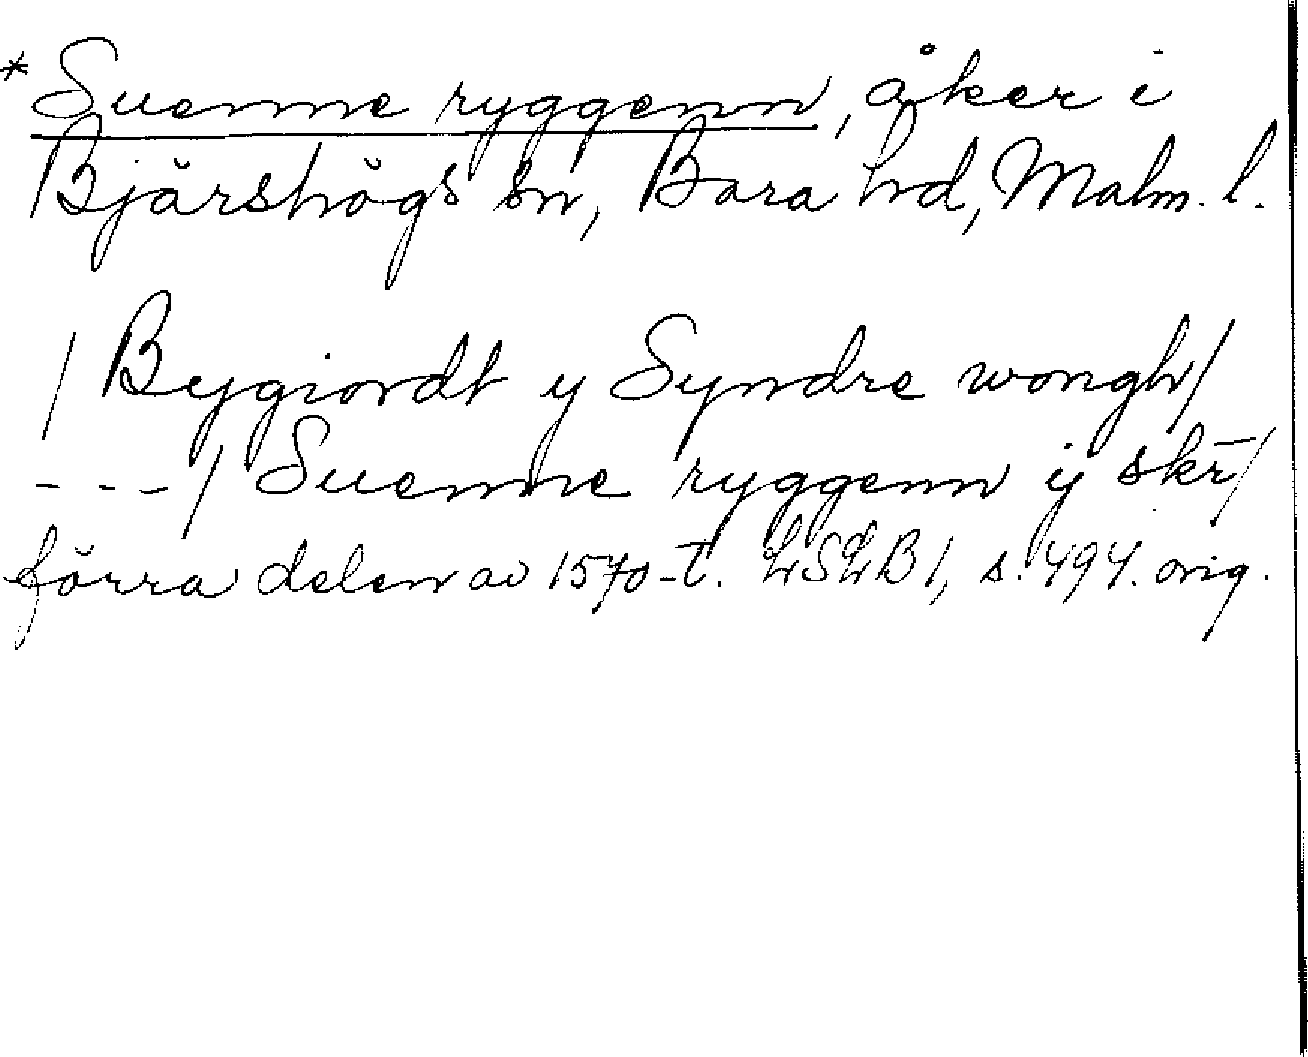 * Suenne ryggenn, åker i
Bjärshögs sn, Bara hd, Malm. l.
/ Bygiordt y Syndre wongh/
---/ Suenne ryggenn ij skr̄/
förra delen av 1570-t. LSLB 1, s. 494. orig.